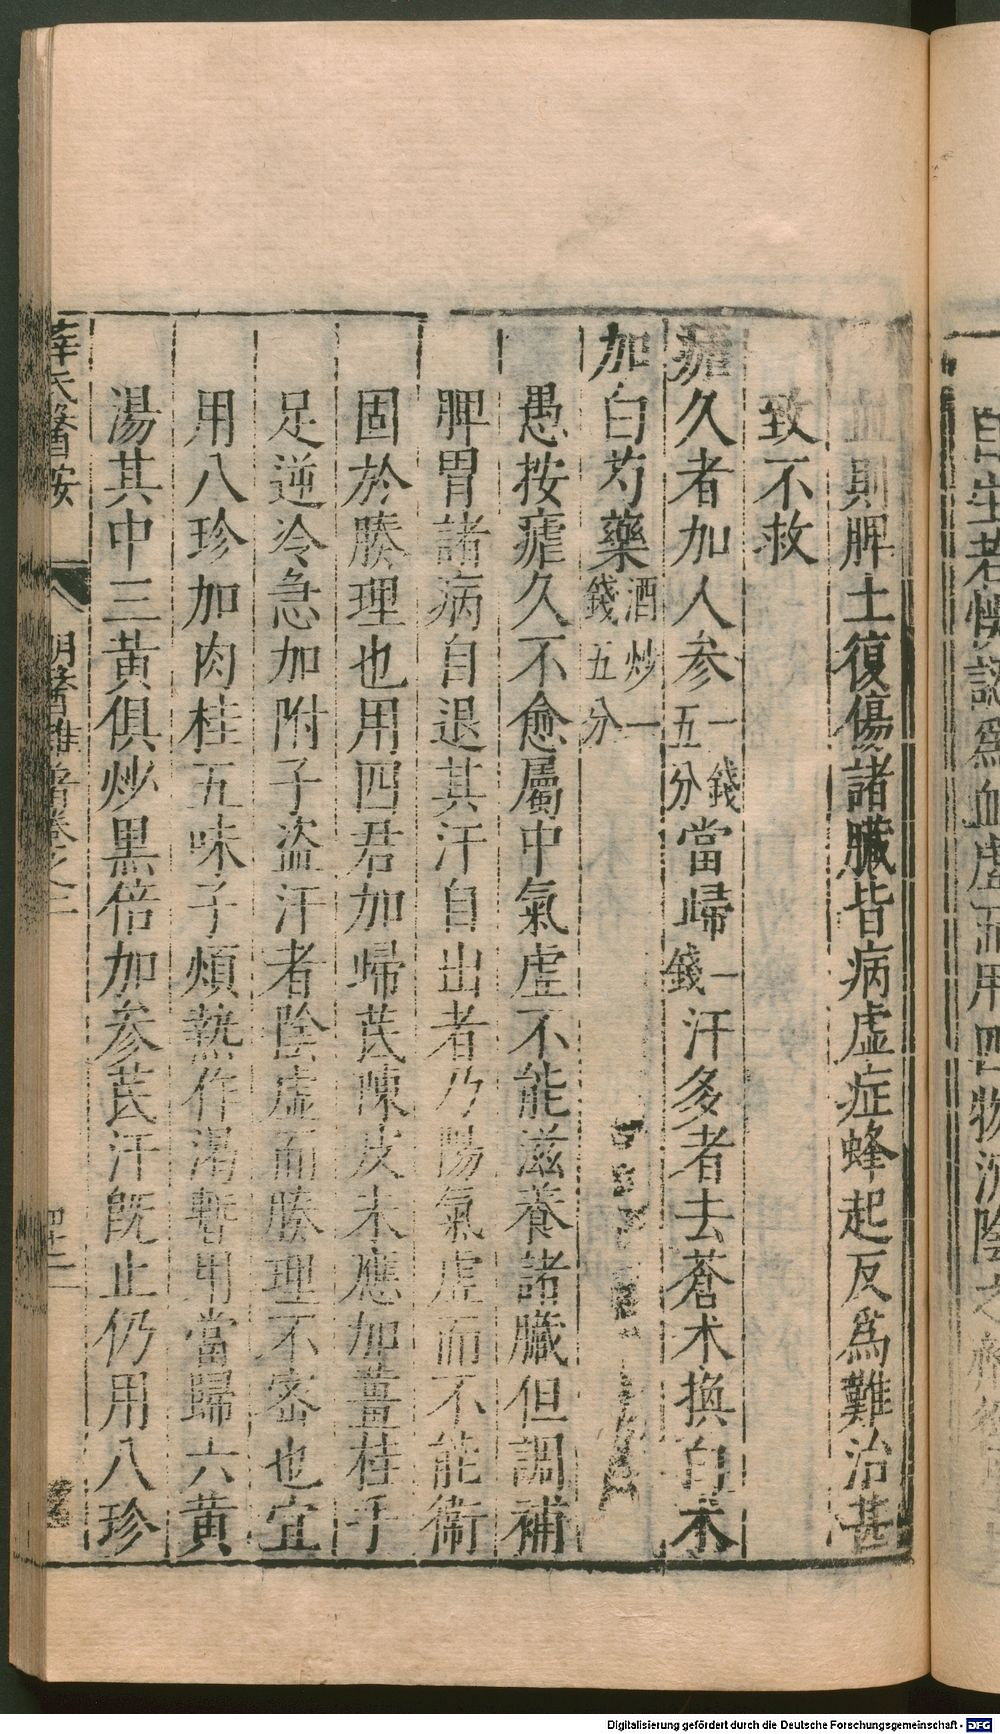 血則脾土復傷諸臟皆病虛症蜂起反爲難治甚
致不救
瘧久者加人參一錢五分當歸一錢汗多者去蒼术換白术
加白芍藥酒炒一錢五分
愚按瘧久不愈屬中氣虛不能滋養諸臟但調補
脾胃諸病自退其汗自出者乃陽氣虛而不能衞
固於腠理也用四君加歸芪陳皮未應加薑桂手
足逆冷急加附子盜汗者陰虛而腠理不密也宜
用八珍加肉桂五味子煩熱作渴暫用當歸六黃
湯其中三黃俱炒黑倍加參芪汗旣止仍用八珍
薛氏醫按
明醫雜著卷之二
自生若悞認爲血虛而用四物沉陰之
Digitalisierung gefördert durch die Deutsche Forschungsgemeinschaft - DFG